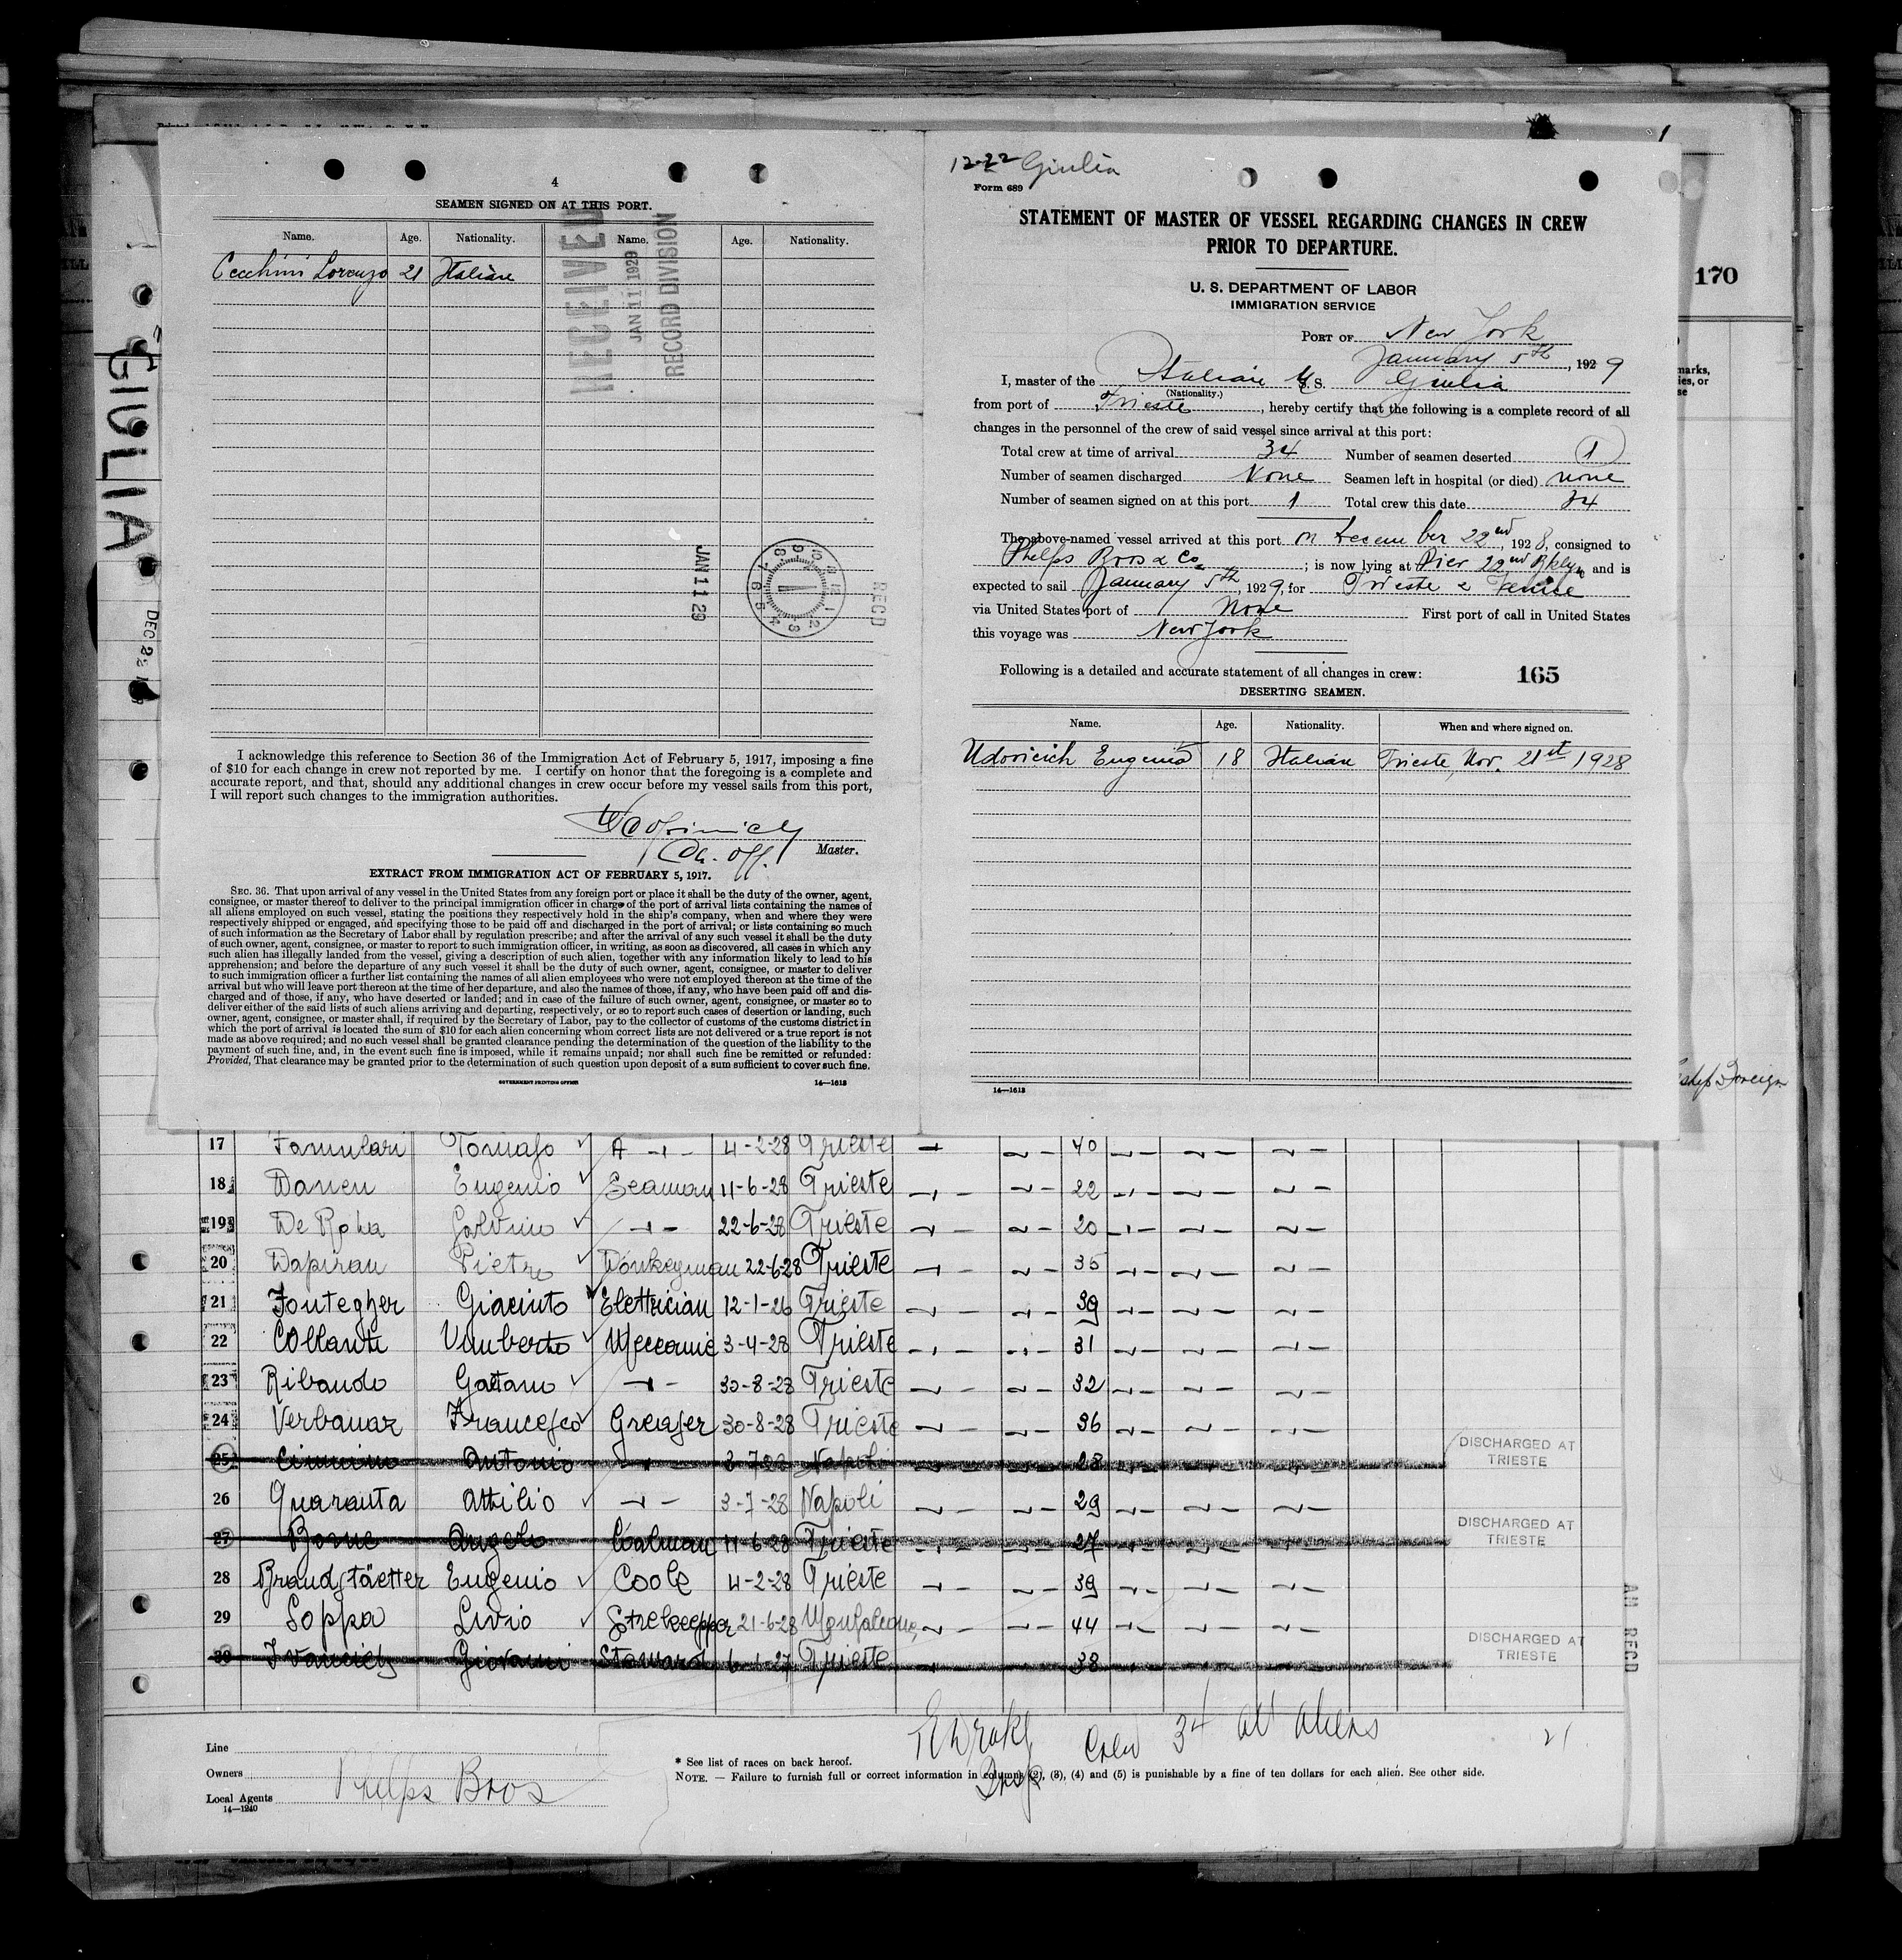 4
SEAMEN SIGNED ON AT THIS PORT.
Name. Age. Nationality. Name. Age. Nationality.
Cecchini Lorenzo 21 Italian
RECEIVED
JAN 11 1929
RECORD DIVISION
JAN 11 29
RECD
I acknowledge this reference to Section 36 of the Immigration Act of February 5, 1917, imposing a fine
of $10 for each change in crew not reported by me. I certify on honor that the foregoing is a complete and
accurate report, and that, should any additional changes in crew occur before my vessel sails from this port,
I will report such changes to the immigration authorities.
Ch. Off. Master.
EXTRACT FROM IMMIGRATION ACT OF FEBRUARY 5, 1917.
SEC. 36. That upon arrival of any vessel in the United States from any foreign port or place it shall be the duty of the owner, agent,
consignee, or master thereof to deliver to the principal immigration officer in charge of the port of arrival lists containing the names of
all aliens employed on such vessel, stating the positions they respectively hold in the ship's company, when and where they were
respectively shipped or engaged, and specifying those to be paid off and discharged in the port of arrival; or lists containing so much
of such information as the Secretary of Labor shall by regulation prescribe; and after the arrival of any such vessel it shall be the duty
of such owner, agent, consignee, or master to report to such immigration officer, in writing, as soon as discovered, all cases in which any
such alien has illegally landed from the vessel, giving a description of such alien, together with any information likely to lead to his
apprehension; and before the departure of any such vessel it shall be the duty of such owner, agent, consignee, or master to deliver
to such immigration officer a further list containing the names of all alien employees who were not employed thereon at the time of the
arrival but who will leave port thereon at the time of her departure, and also the names of those, if any, who have been paid off and dis-
charged and of those, if any, who have deserted or landed; and in case of the failure of such owner, agent, consignee, or master so to
deliver either of the said lists of such aliens arriving and departing, respectively, or so to report such cases of desertion or landing, such
owner, agent, consignee, or master shall, if required by the Secretary of Labor, pay to the collector of customs of the customs district in
which the port of arrival is located the sum of $10 for each alien concerning whom correct lists are not delivered or a true report is not
made as above required; and no such vessel shall be granted clearance pending the determination of the question of the liability to the
payment of such fine, and, in the event such fine is imposed, while it remains unpaid; nor shall such fine be remitted or refunded:
Provided, That clearance may be granted prior to the determination of such question upon deposit of a sum sufficient to cover such fine.
GOVERNMENT PRINTING OFFICE 14—1613
12-22 Giulia
Form 689
STATEMENT OF MASTER OF VESSEL REGARDING CHANGES IN CREW
PRIOR TO DEPARTURE.
U. S. DEPARTMENT OF LABOR
IMMIGRATION SERVICE
PORT OF New York
January 5th, 1929
I, master of the Italian S. S. Giulia
(Nationality.)
from port of Trieste, hereby certify that the following is a complete record of all
changes in the personnel of the crew of said vessel since arrival at this port:
Total crew at time of arrival 34 Number of seamen deserted 1
Number of seamen discharged None Seamen left in hospital (or died) none
Number of seamen signed on at this port 1 Total crew this date 34
The above-named vessel arrived at this port on December 22nd, 1928, consigned to
Phelps Bros & Co; is now lying at Pier 22nd Bklyn and is
expected to sail January 5th, 1929, for Trieste & Venice
via United States port of None First port of call in United States
this voyage was New York
Following is a detailed and accurate statement of all changes in crew: 165
DESERTING SEAMEN.
Name. Age. Nationality. When and where signed on.
Udovicich Eugenio 18 Italian Trieste, Nov. 21st 1928
14—1613
170
marks,
ies, or
se
Foreign
GIULIA
DEC 22
17 Famulari Tomaso A 4-2-28 Trieste 40
18 Daneu Eugenio Seaman 11-6-28 Trieste 22
19 22-6-28 Trieste 20
20 Dapiran Pietro Donkeyman 22-6-28 Trieste 35
21 Fontegher Giacinto Elettrician 12-1-26 Trieste 39
22 Collanti Umberto Meccanic 3-4-28 Trieste 31
23 Ribaudo Gaetano 30-8-28 Trieste 32
24 Verbanaz Francesco Greaser 30-8-28 Trieste 36
25 Cimmino Antonio 3-7-28 Napoli 28 DISCHARGED AT TRIESTE
26 Quaranta Attilio 3-7-28 Napoli 29
27 Bonne Angelo Coalman 11-6-28 Trieste 27 DISCHARGED AT TRIESTE
28 Brandstäetter Eugenio Coole 4-2-28 Trieste 39
29 Soppa Livio Storekeepper 21-6-28 Monfalcone 44
30 Ivancich Giovanni Steward 6-1-27 Trieste 38 DISCHARGED AT TRIESTE
AM RECD
Crew 34 all aliens 21
Line
Owners
Local Agents Phelps Bros
14—1240
* See list of races on back hereof.
NOTE. — Failure to furnish full or correct information in columns (2), (3), (4) and (5) is punishable by a fine of ten dollars for each alien. See other side.